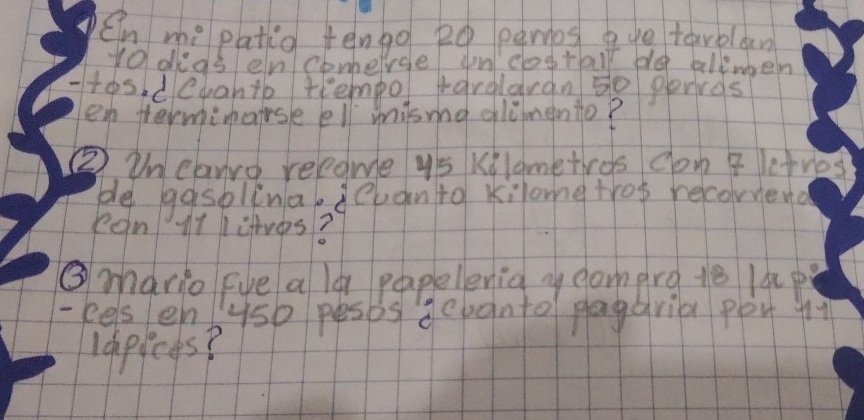 ① En mi patio tengo 20 perros que tardan
10 dias en comerse un costal de alimen
-tos. ¿Cuanto tiempo tardaran 50 perros
en terminarse el mismo alimento?
② Un carro recorre 45 Kilometros con 7 litros
de gasolina. ¿Cuanto Kilometros recorrera
con 11 litros?
③ mario fue a la papeleria y compro 18 lapi
-ces en 450 pesos ¿cuanto pagaria por 11
lápices?